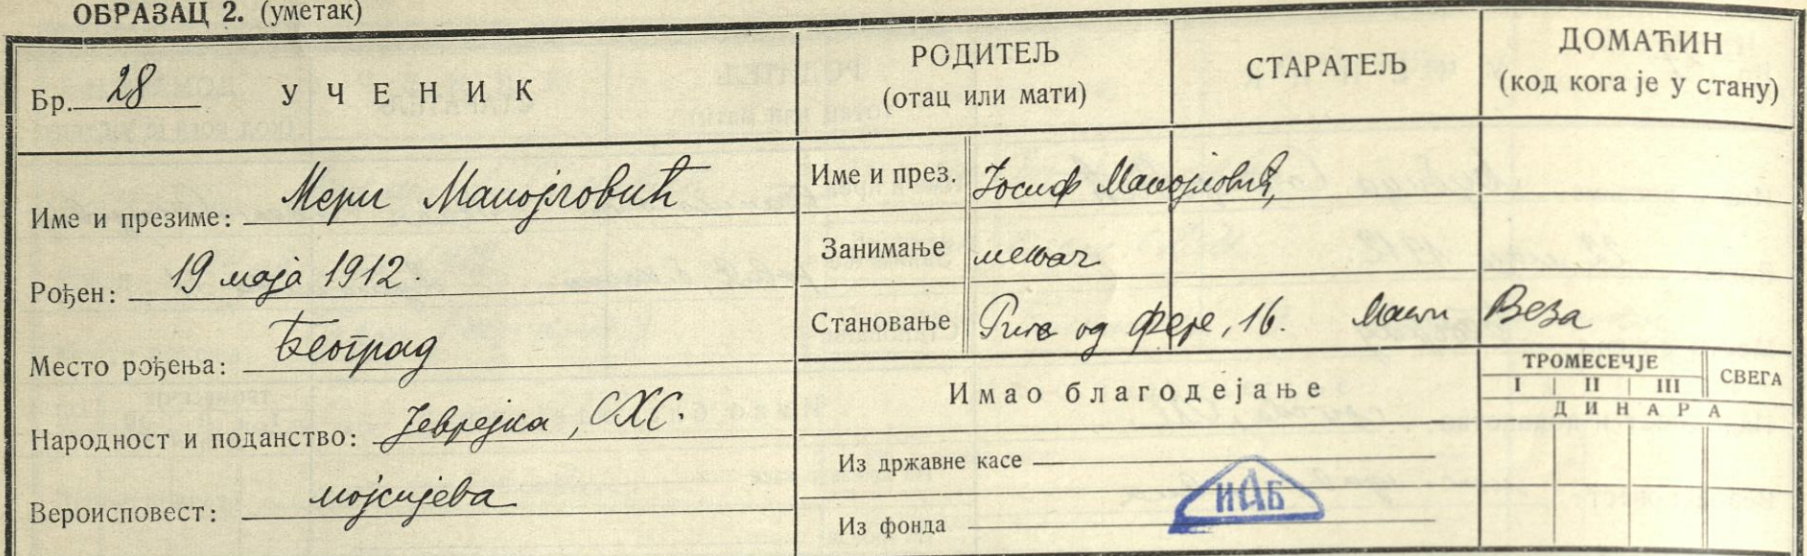 ОБРАЗАЦ 2. (уметак)
Бр. 28 УЧЕНИК
РОДИТЕЉ
(отац или мати)
СТАРАТЕЉ
ДОМАЋИН
(код кога је у стану)
Име и презиме: Мери Манојловић
Рођен: 19 маја 1912.
Место рођења: Београд
Народност и поданство: Јеврејка, СХС.
Вероисповест: мојсијева
Име и през. Јосиф Манојловић,
Занимање мењач
Становање Риге од Фере, 16. Веза
Имао благодејање
ТРОМЕСЕЧЈЕ СВЕГА
I II III
ДИНАРА
Из државне касе
Из фонда
ИАБ